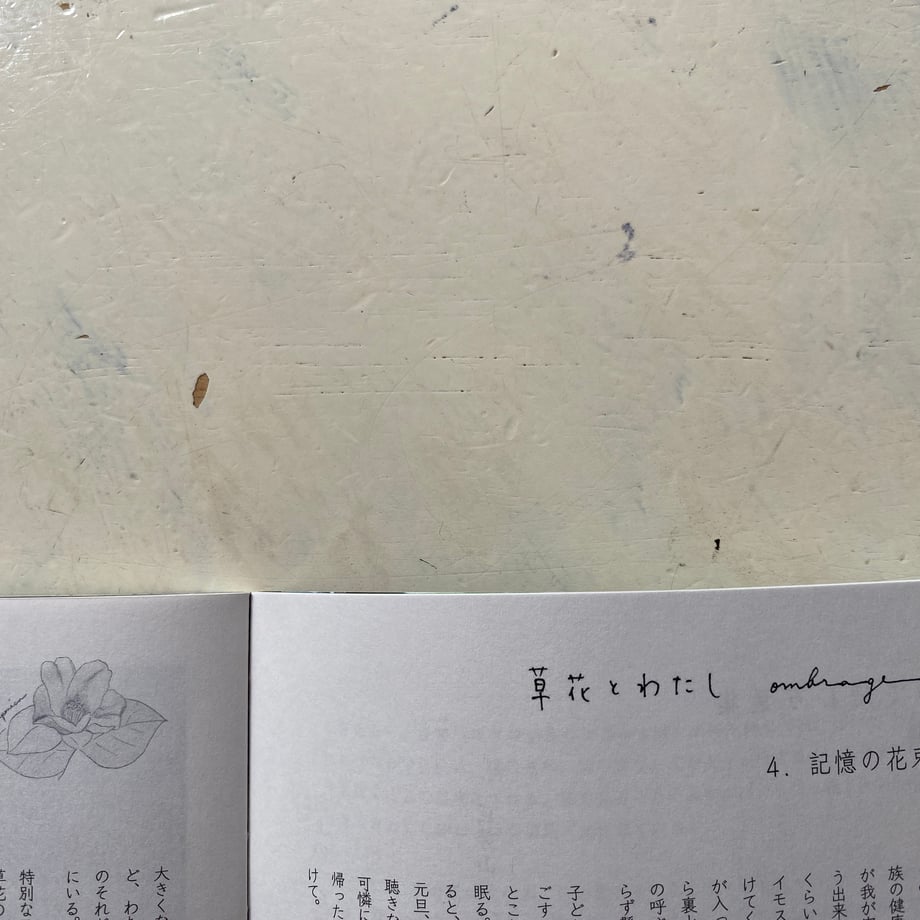 草花とわたし ombrage
4. 記憶の花束
族の健
が我が
う出来
くらい
イモス
けてく
が入っ
の呼
ら裏
らず
子ど
ごす
とこ
眠る。
ると、
元旦、
聴きな
可憐に
帰った
けて。
大きくな
ど、わた
のそれが
にいる。
特別な
草花の